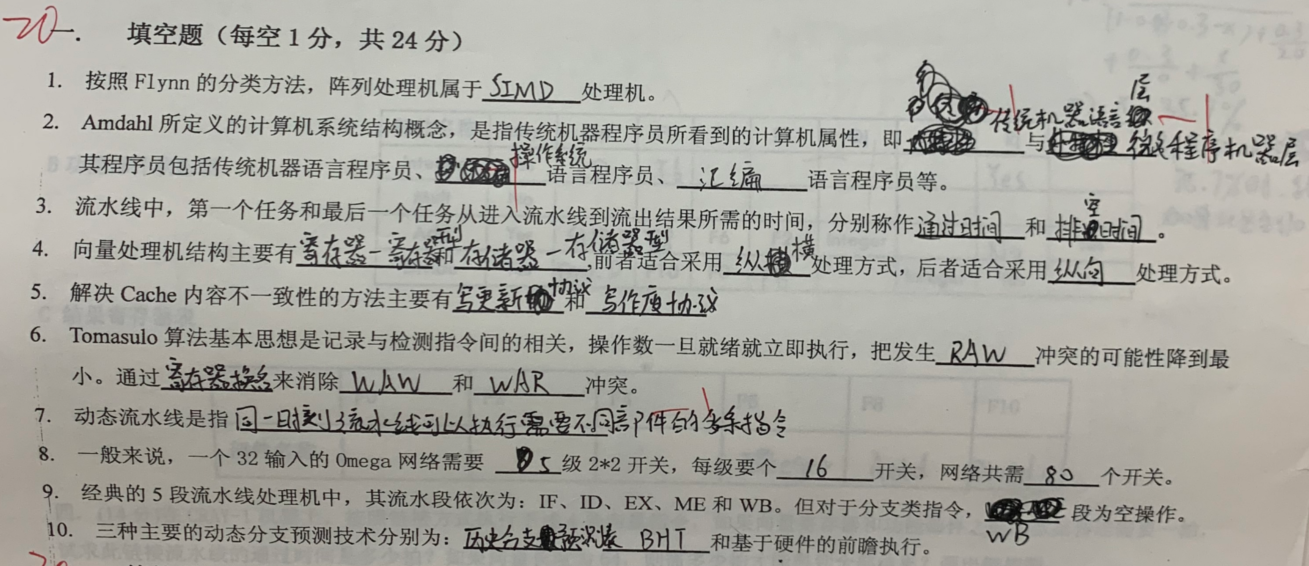 20
一. 填空题（每空 1 分，共 24 分）
1. 按照 Flynn 的分类方法，阵列处理机属于 SIMD 处理机。
2. Amdahl 所定义的计算机系统结构概念，是指传统机器程序员所看到的计算机属性，即 传统机器语言层 与 微程序机器层
其程序员包括传统机器语言程序员、操作系统 语言程序员、 汇编 语言程序员等。
3. 流水线中，第一个任务和最后一个任务从进入流水线到流出结果所需的时间，分别称作 通过时间 和 排空时间 。
4. 向量处理机结构主要有 寄存器-寄存器型 和 存储器-存储器型 ,前者适合采用 纵横 处理方式，后者适合采用 纵向 处理方式。
5. 解决 Cache 内容不一致性的方法主要有 写更新协议 和 写作废协议
6. Tomasulo 算法基本思想是记录与检测指令间的相关，操作数一旦就绪就立即执行，把发生 RAW 冲突的可能性降到最
小。通过 寄存器换名 来消除 WAW 和 WAR 冲突。
7. 动态流水线是指 同一时刻流水线可以执行需要不同部件的多条指令
8. 一般来说，一个 32 输入的 Omega 网络需要 5 级 2*2 开关，每级要个 16 开关，网络共需 80 个开关。
9. 经典的 5 段流水线处理机中，其流水段依次为：IF、ID、EX、ME 和 WB。但对于分支类指令， WB 段为空操作。
10. 三种主要的动态分支预测技术分别为： 历史分支预测表 BHT 和基于硬件的前瞻执行。